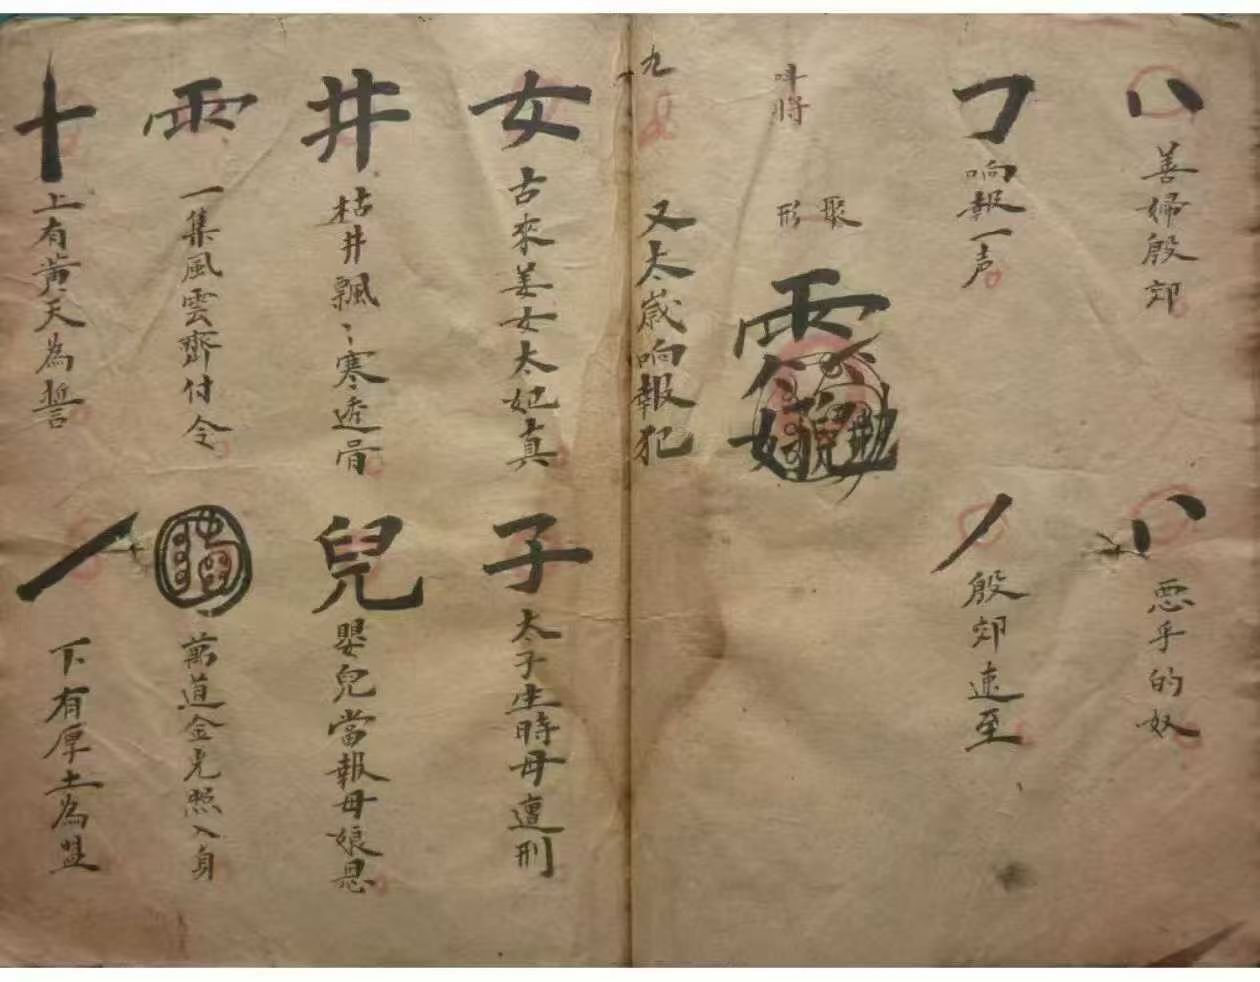 八
善婦殷郊
八
惡乎的奴
㇆
响報一声
丿
殷郊速至
聚
形
九
又太歲响報犯
女
古來姜女太妃真
子
太子生時母遭刑
井
枯井飄〻寒透骨
兒
嬰兒當報母娘恩
雨
一集風雲齊付令
萬道金光照入身
十
上有黃天為誓
丿
下有厚土為盟